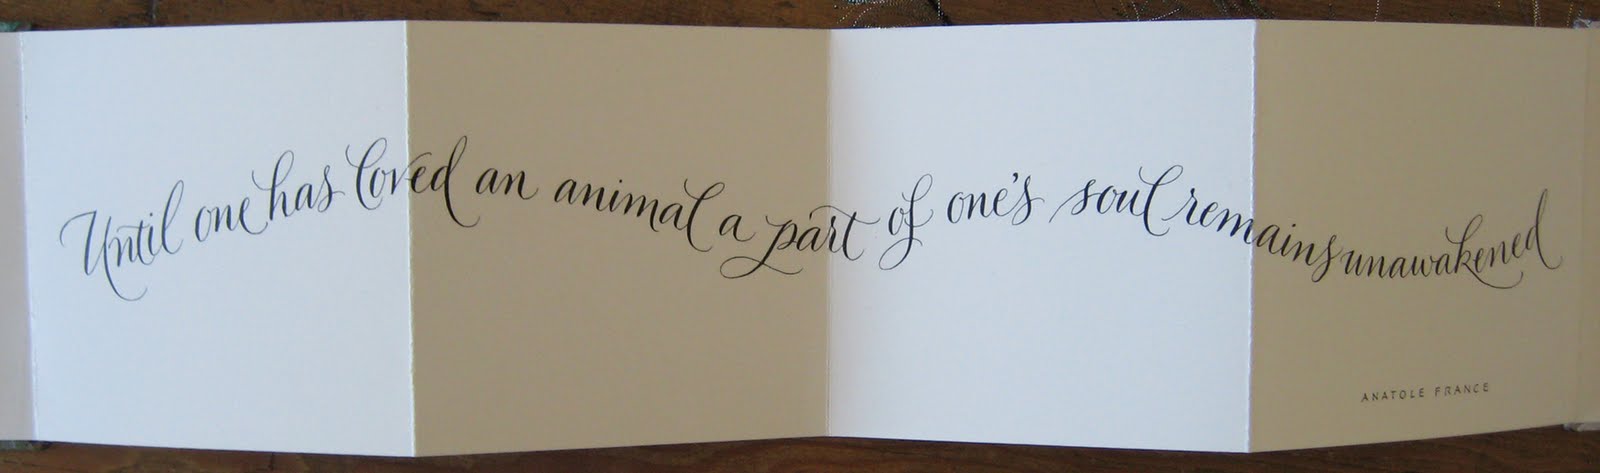 Until one has loved an animal a part of one's soul remains unawakened
ANATOLE FRANCE